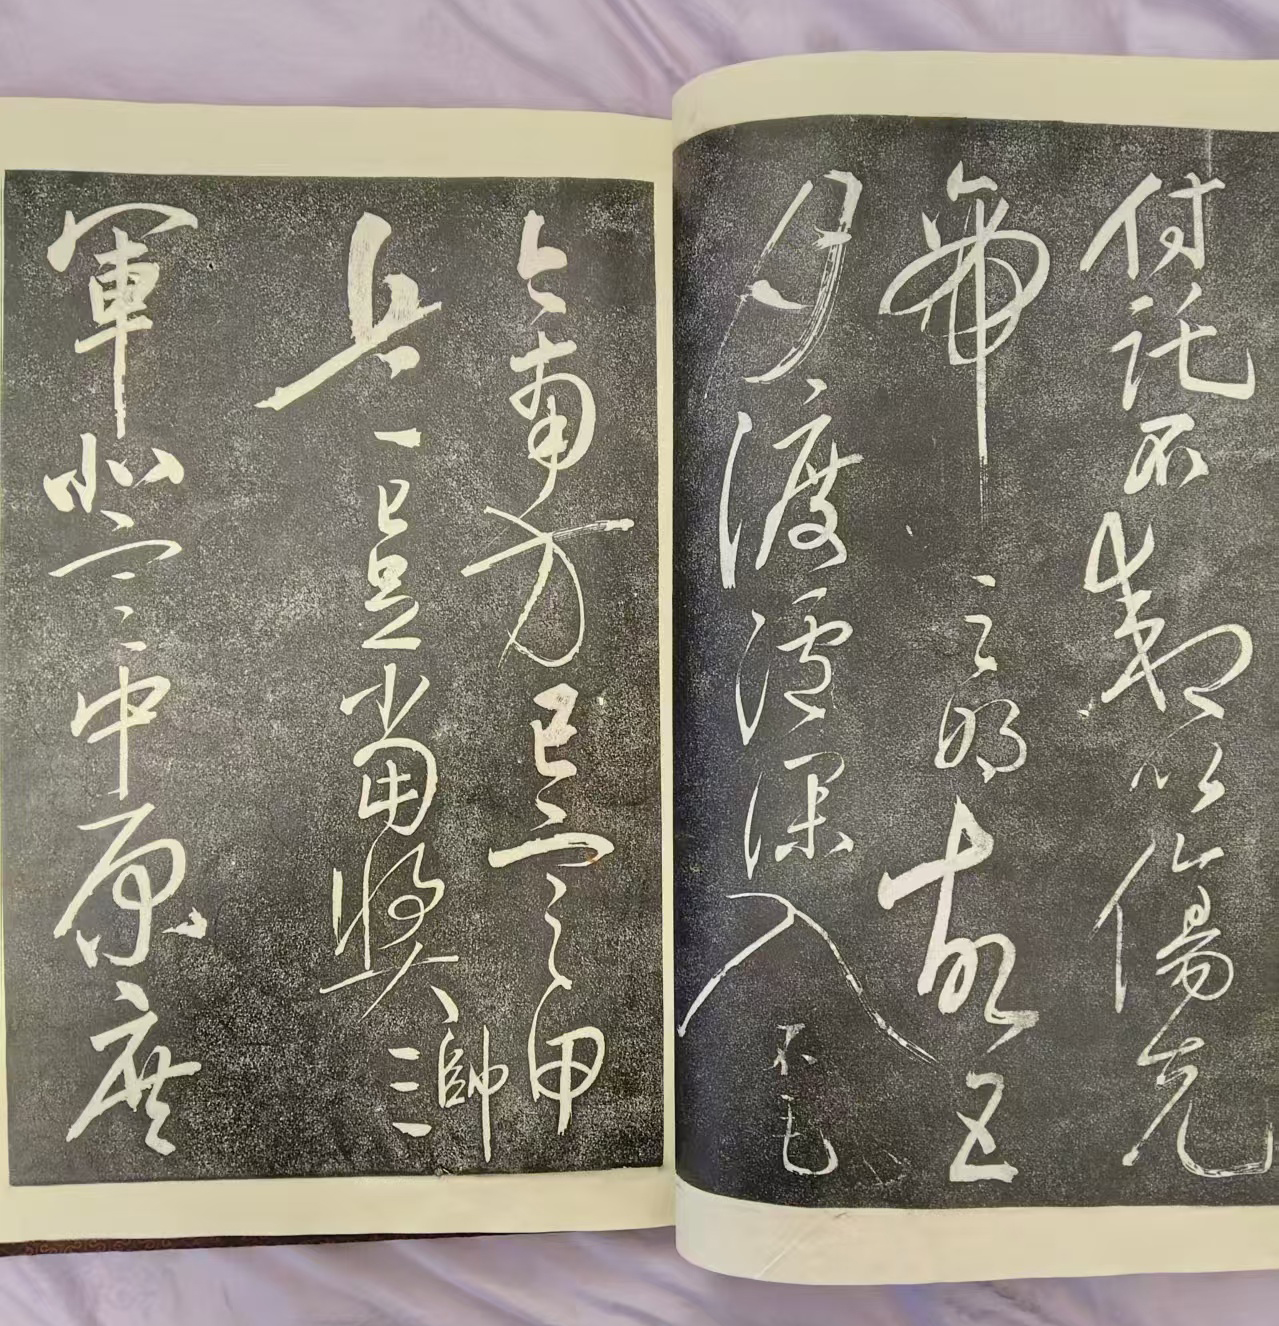 付託不效以傷先
帝之明故五
月渡瀘深入不毛
今南方已定甲
兵已足當獎帥三
軍北定中原庶